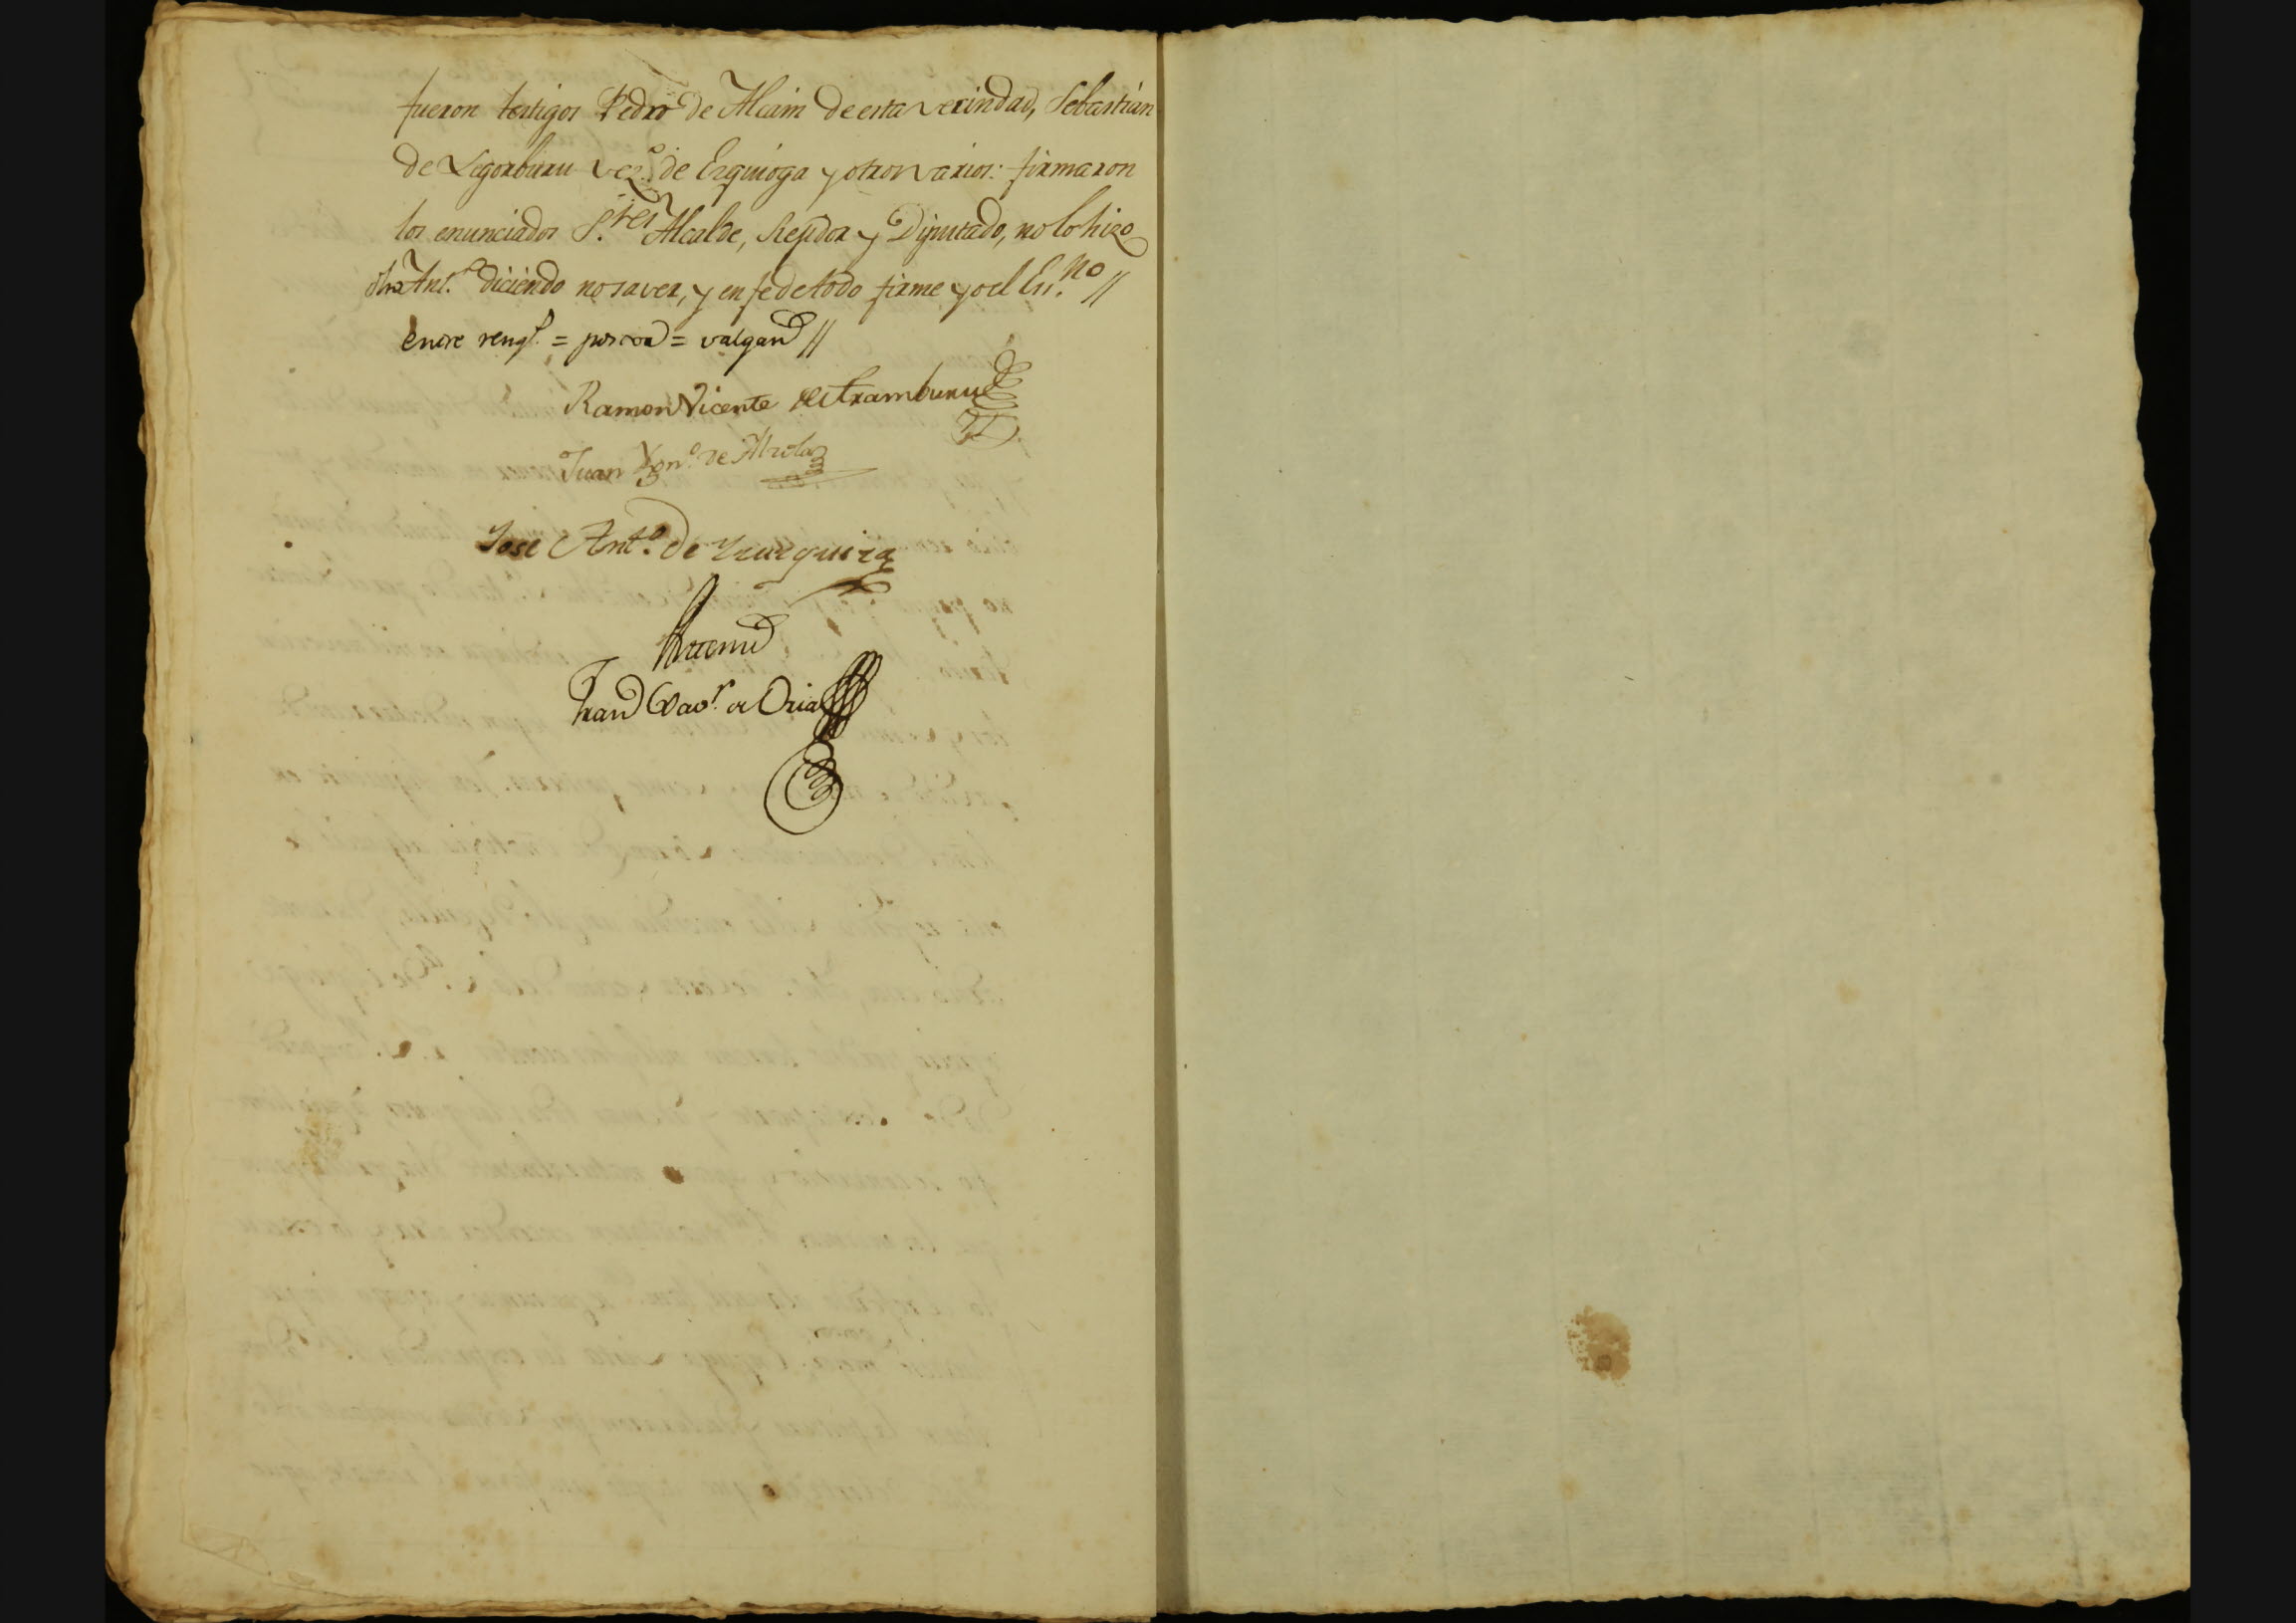 fueron testigos Pedro de Alcain de esta vecindad, Sebastian
de Legorburu vez.º de Ezquioga y otros varios: firmaron
los enunciados S.res Alcalde, Regidor y Diputado, no lo hizo
dho Ant.º diciendo no saver, y en fe de todo firme yo el Es.no //
entre reng.s = = valgan //
Ramon Vicente de Aramburu
Juan Ygn.º de
José Ant.º de Yzuzquiza
Ante mi
Fran Xav.r de Oria